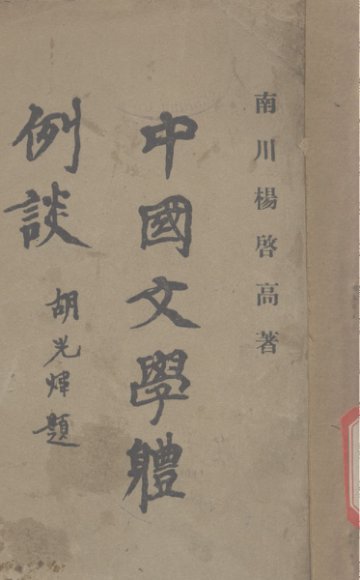 南川楊啓高著
中國文學體
例談
胡光煒題